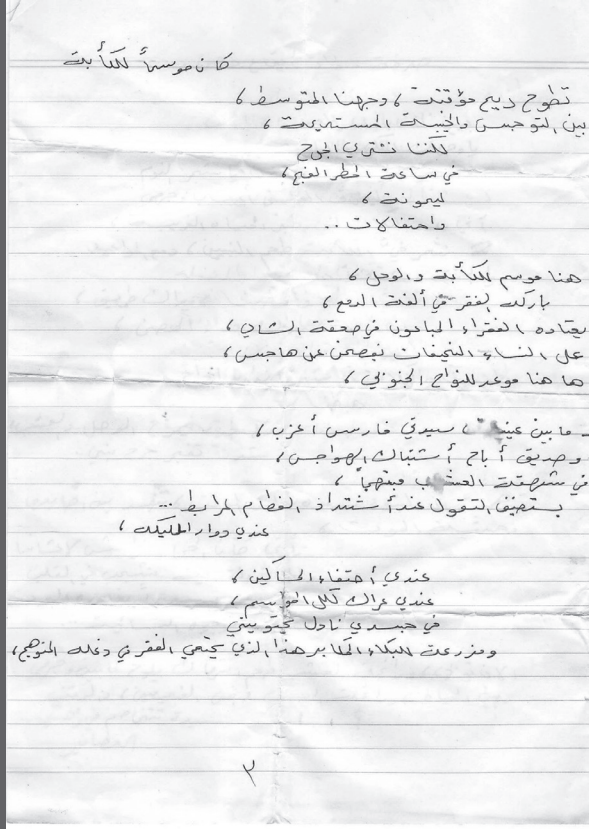 كان موسماً للكأبة
تطوح ريح مؤقتة، وجهنا المتوسط،
بين التوجس والخيبة المستديمة،
لكننا نشتري الجرح
في ساعة المطر الفج،
ليمونة،
واحتفالات..
هنا موسم للكأبة والوحل،
بارك الفقر في ألفة الدمع،
يعتاده الفقراء المباعون في صعقة الشاي،
على النساء النحيفات يفصحن عن هاجس،
ها هنا موعد للنواح الجنوبي،
ما بين سيدتي فارس أعزب،
وصديق أباح أشتباك الهواجس،
في شهقة
يستضيف التقول عند أشتداد الفطام المرابط...
عندي دوار المليك،
عندي أحتفاء المساكين،
عندي عراك لكل المواسم،
في جسدي نادل يحتويني
ومزرعة للبكاء المكابر هذا الذي يختفي الفقر في دغله المتوهج،
٣